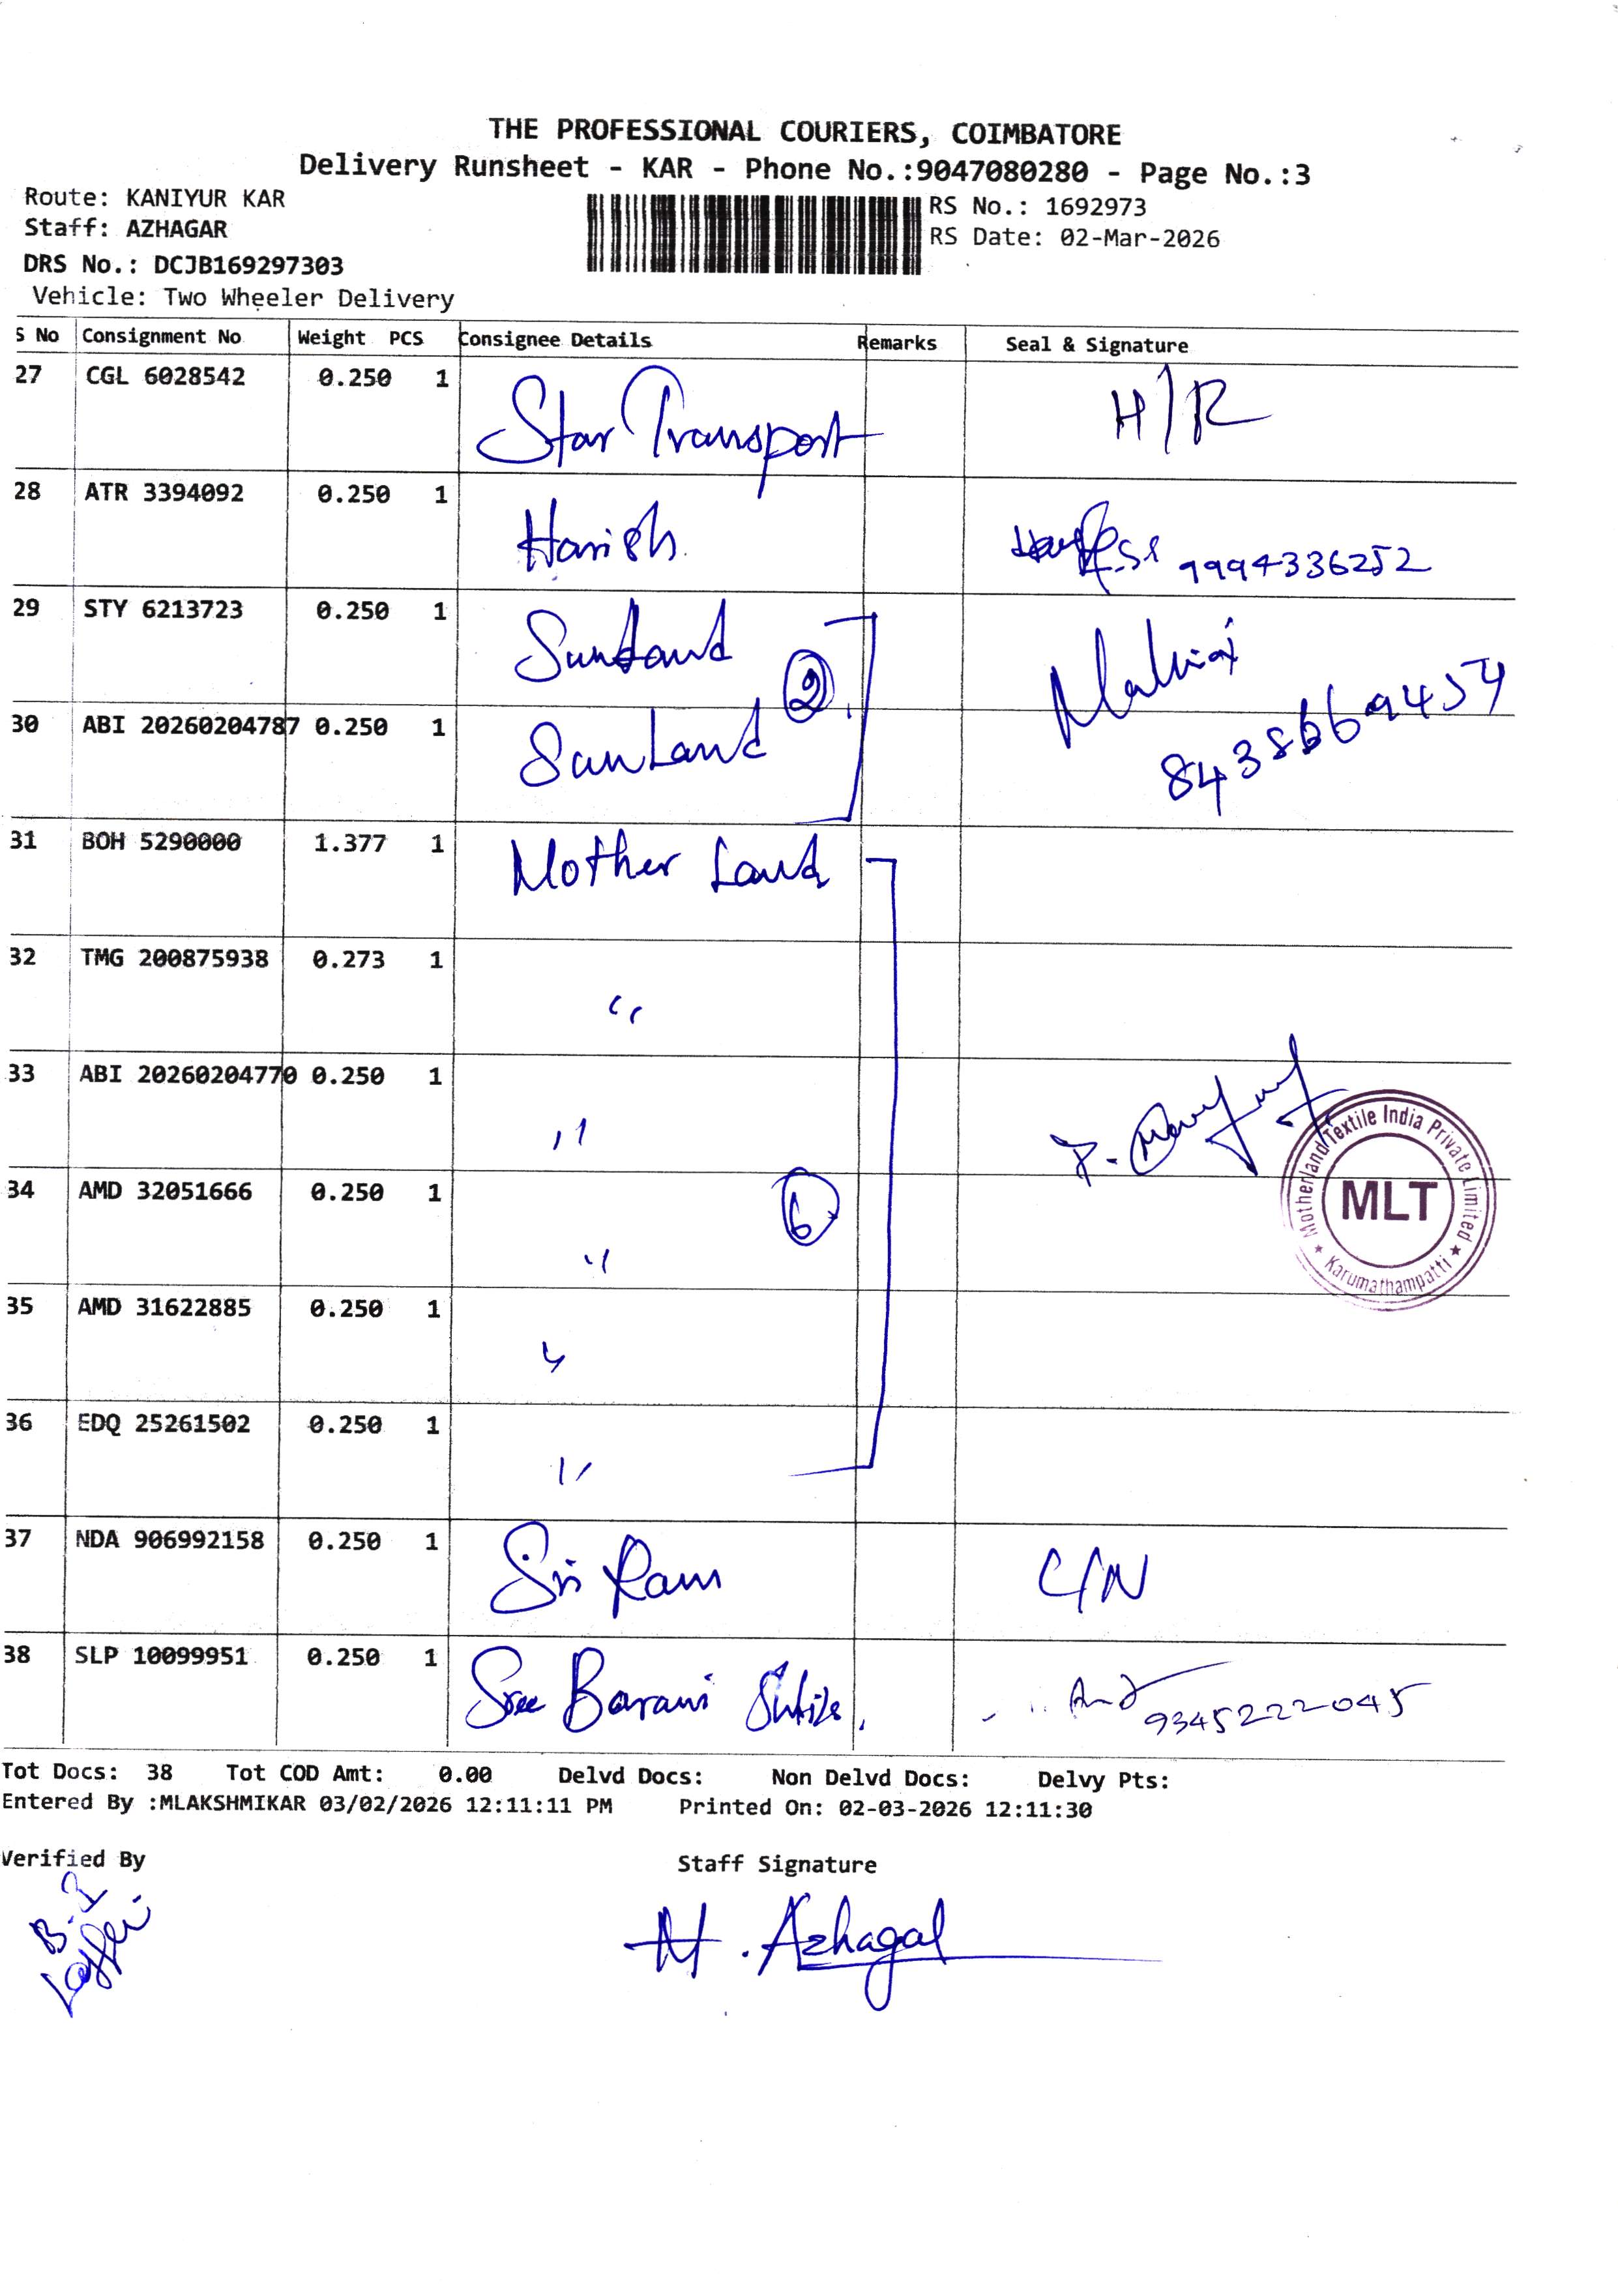 THE PROFESSIONAL COURIERS, COIMBATORE
Delivery Runsheet - KAR - Phone No.:9047080280 - Page No.:3
Route: KANIYUR KAR
RS No.: 1692973
Staff: AZHAGAR
RS Date: 02-Mar-2026
DRS No.: DCJB169297303
Vehicle: Two Wheeler Delivery
S No Consignment No Weight PCS Consignee Details Remarks Seal & Signature
27 CGL 6028542 0.250 1 Star Transport H/R
28 ATR 3394092 0.250 1 Harish 9994336252
29 STY 6213723 0.250 1
2
30 ABI 20260204787 0.250 1 SunLand
31 BOH 5290000 1.377 1 Mother Land
32 TMG 200875938 0.273 1 "
33 ABI 20260204770 0.250 1 "
Motherland Textile India Private Limited
MLT
Karumathampatti
34 AMD 32051666 0.250 1 "
6
35 AMD 31622885 0.250 1 "
36 EDQ 25261502 0.250 1 "
37 NDA 906992158 0.250 1 Sri Ram C/N
38 SLP 10099951 0.250 1 Sree Barani 9345222045
Tot Docs: 38 Tot COD Amt: 0.00 Delvd Docs: Non Delvd Docs: Delvy Pts:
Entered By :MLAKSHMIKAR 03/02/2026 12:11:11 PM Printed On: 02-03-2026 12:11:30
Verified By
Staff Signature
M. Azhagal